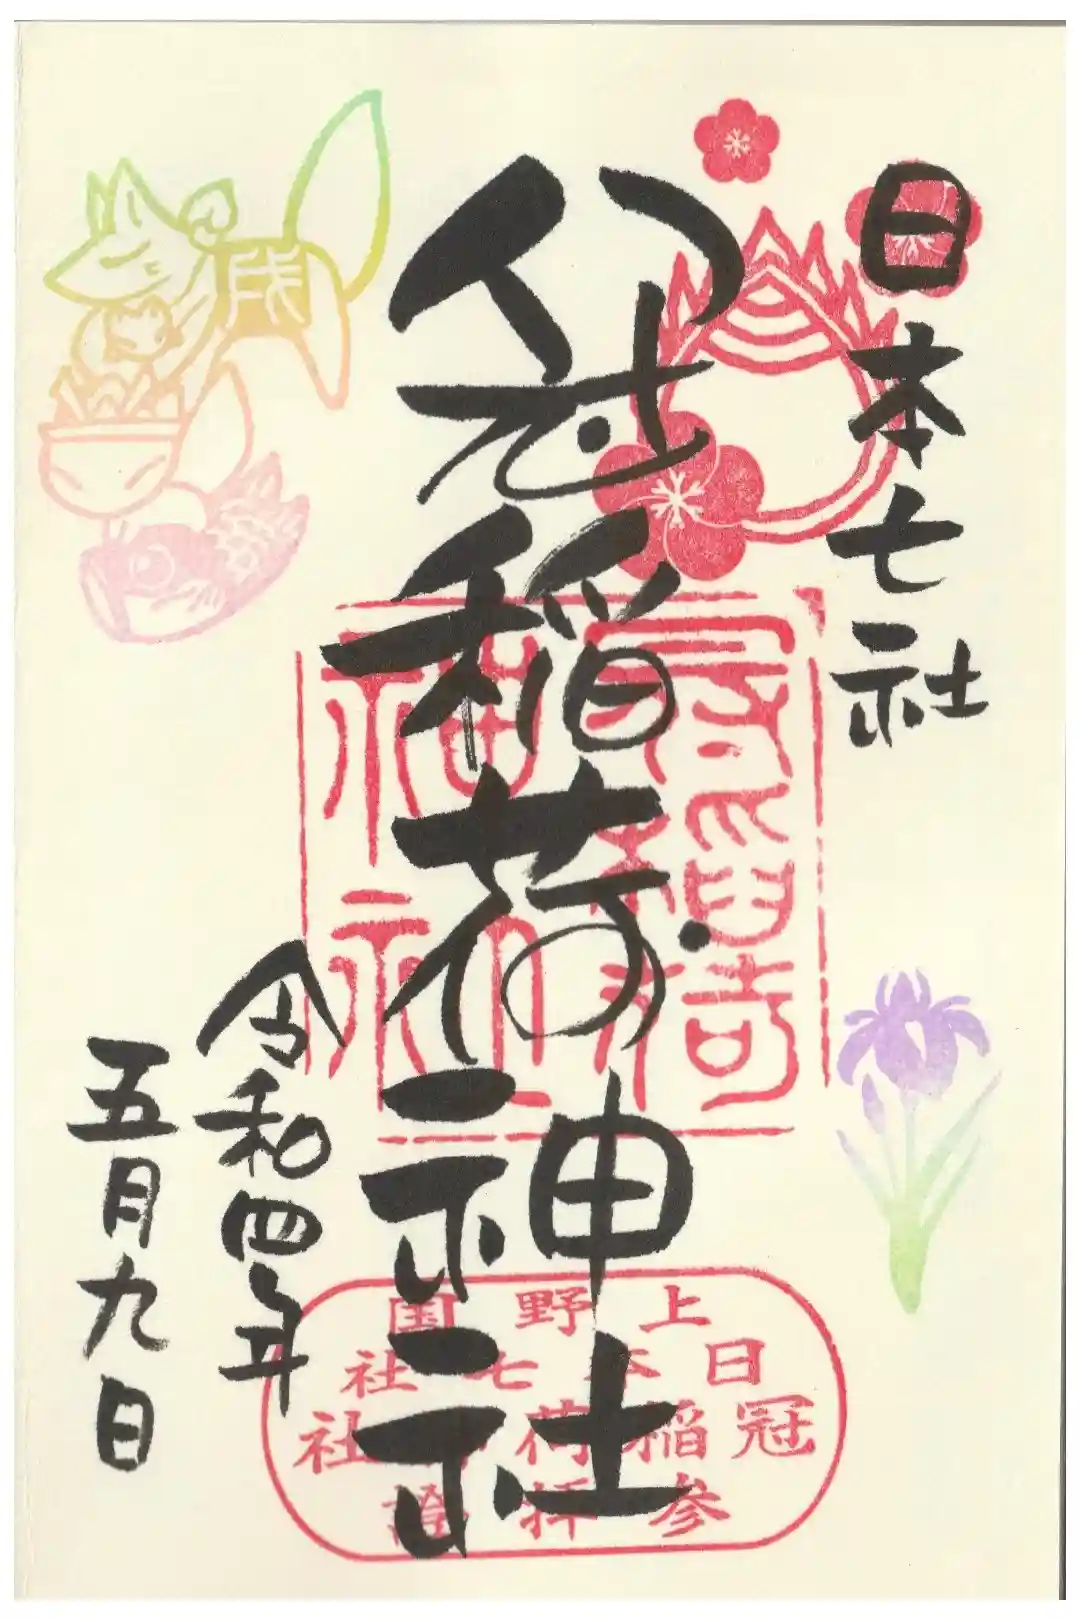 日本七社
冠稲荷神社
令和四年
五月九日
上野国
日本七社
冠稲荷神社
参拝證